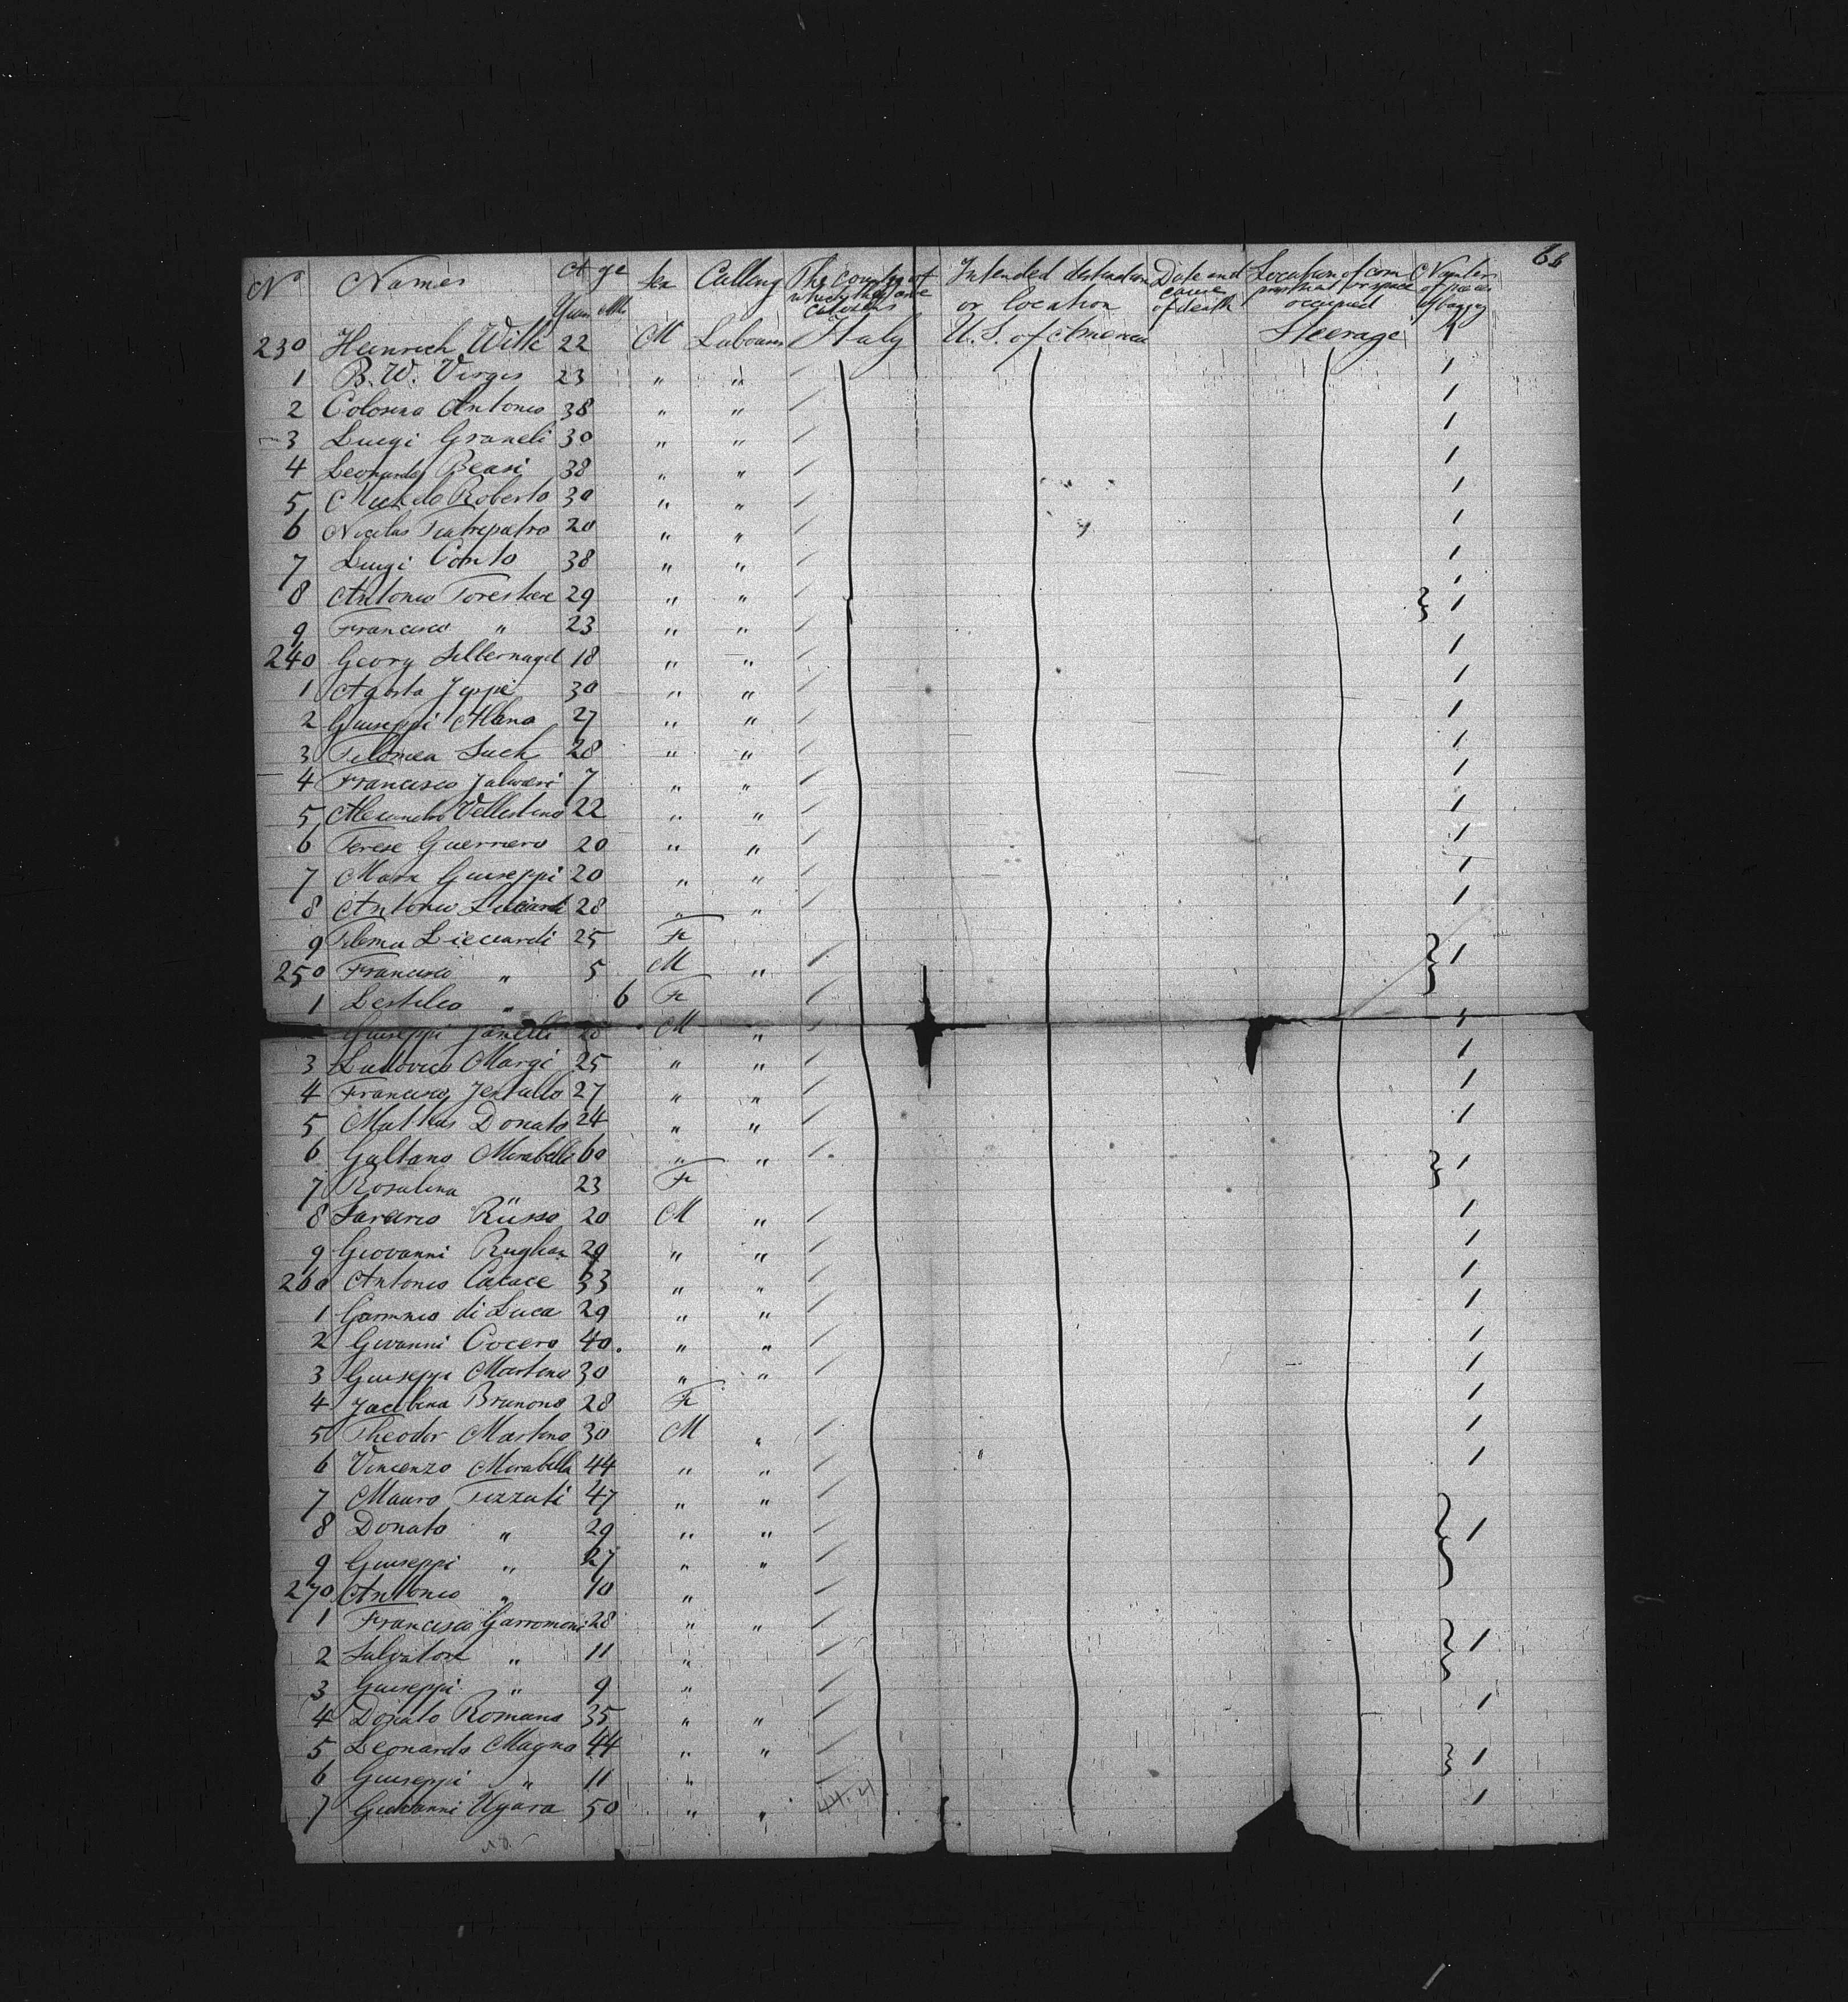 66
No Names Age Sex Calling The country of which they are citizens Intended destination or location Date and cause of death Location of compartment or space occupied Number of pieces of baggage
Years Mths
230 Heinrich Wilk 22 M Labourer Italy U. S. of America Steerage 1
1 B. W. Virges 23 " " 1
2 Colosena Antonio 38 " " 1
3 Luigi Graneli 30 " " 1
4 Leonardo Beasi 38 " " 1
5 Michele Roberto 30 " " 1
6 Nicolas 20 " " 1
7 Luigi Conto 38 " " 1
8 Antonio 29 " " } 1
9 Francisco " 23 " "
240 Georg Silbernagel 18 " " 1
1 Agosta 30 " " 1
2 Giuseppi Albano 27 " " 1
3 Filomea Such 28 " " 1
4 Francisco 7 " " 1
5 Alexandro Vellestino 22 " " 1
6 Terese Guerriero 20 " " 1
7 Mara Giuseppi 20 " " 1
8 Antonio Licciardi 28 " " 1
9 Filoma Licciardi 25 Fe } 1
250 Francisco " 5 M "
1 " 6 Fe
Giuseppi 20 M " 1
3 Ludovico Margi 25 " " 1
4 Francisco 27 " " 1
5 Matteus Donato 24 " " 1
6 Galtano Mirabelli 60 " " } 1
7 Rosalina " 23 Fe
8 Russo 20 M " 1
9 Giovanni 29 " " 1
260 Antonio Catace 33 " " 1
1 di Luca 29 " " 1
2 Giovanni Cocero 40 " " 1
3 Giuseppi Martino 30 " " 1
4 Jacobina Brunono 28 Fe 1
5 Theodor Martino 30 M " 1
6 Vincenzo Mirabella 44 " " 1
7 Mauro Tizzati 47 " " } 1
8 Donato " 29 " "
9 Giuseppi " 27 " "
270 Antonio " 10 "
1 Francisco Garromoni 28 " " } 1
2 Salvatore " 11 "
3 Giuseppi " 9 "
4 Donato Romano 35 " " 1
5 Leonardo Magno 44 " " } 1
6 Giuseppi " 11 "
7 Giovanni Ugara 50 " " 1